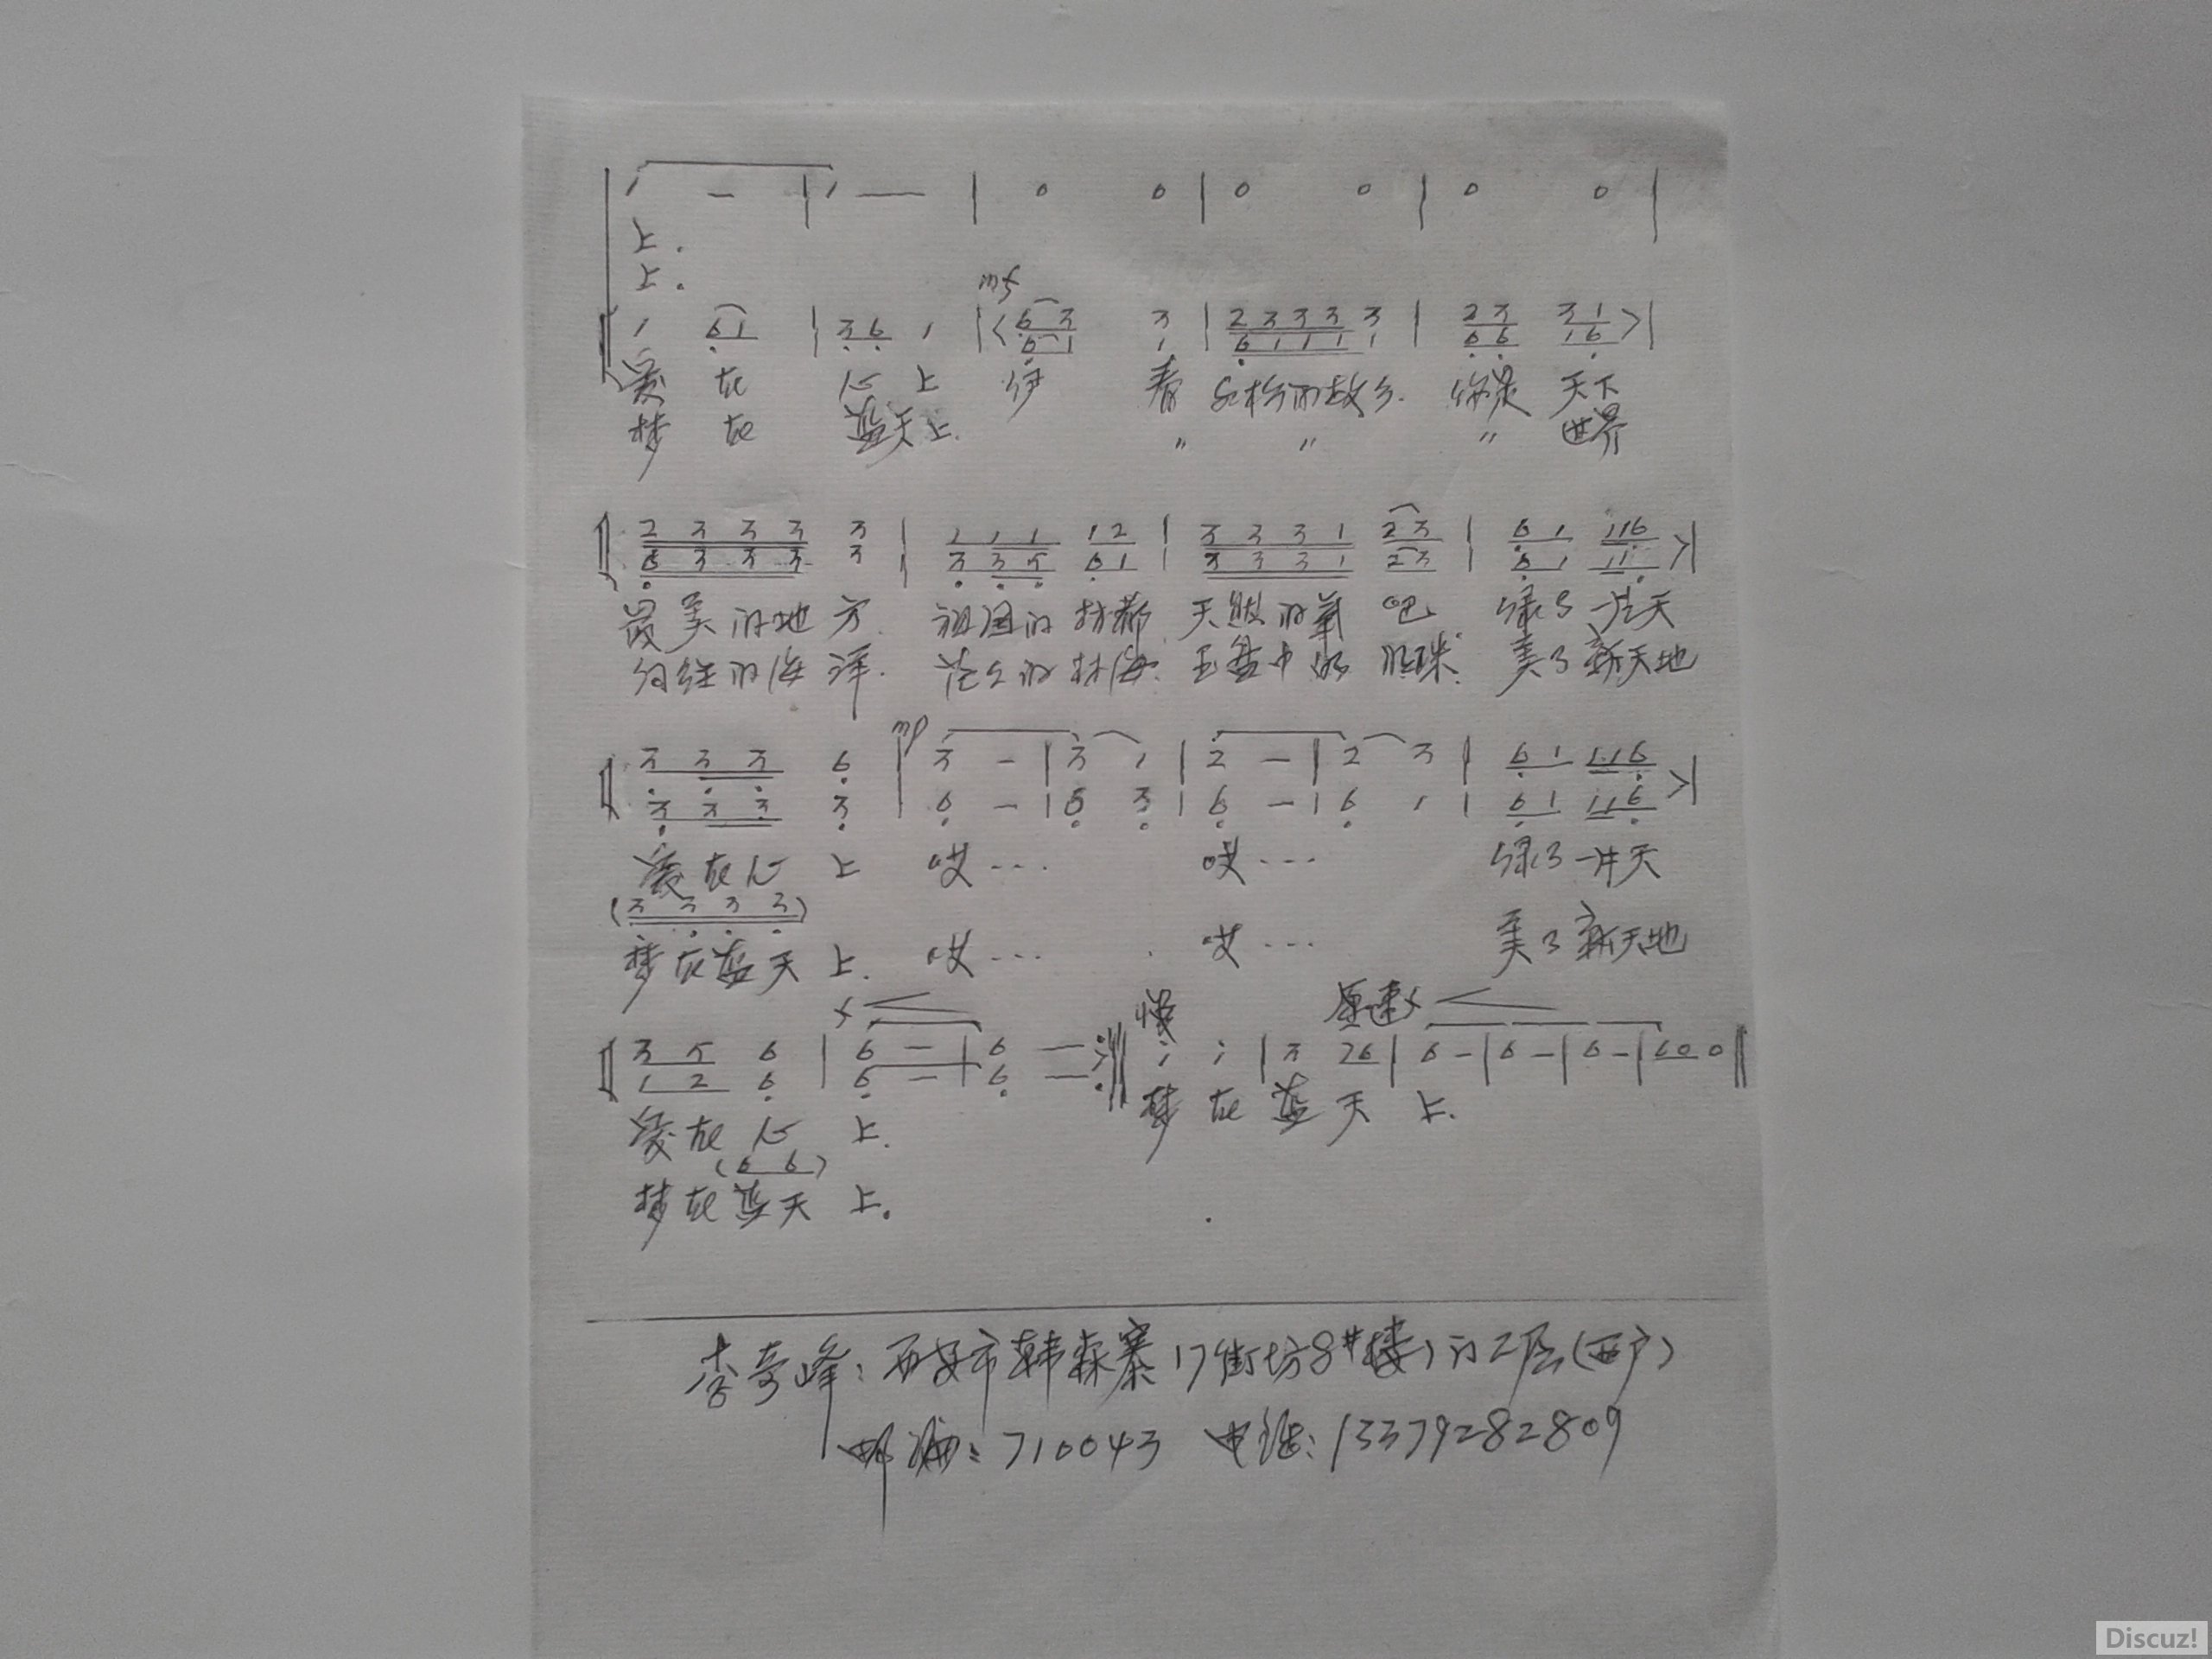 1 - | 1 — | 0 0 | 0 0 | 0 0 |
上.
上.
mf
1 61 | 36 1 | <63 3 | 2333 3 | 23 31 >|
61 1 | 6111 1 | 66 16
爱 在 心 上 伊 春 红松的故乡. 你是 天下
梦 在 蓝天上. " " " 世界
2 3 3 3 3 | 1 1 1 12 | 3 3 3 1 23 | 61 116 >|
6 3 3 3 3 | 3 3 5 61 | 3 3 3 1 23 | 61 116
最美的地方. 祖国的林都 天然的氧吧 绿了一片天
的海洋. 茫茫的林海. 玉盘中的明珠. 美了新天地
mp
3 3 3 6 | 3 - | 3 1 | 2 - | 2 3 | 61 116 >|
3 3 3 3 | 6 - | 6 3 | 6 - | 6 1 | 61 116
爱在心 上 哎… 哎… 绿了一片天
(3 3 3 3)
梦在蓝天 上. 哎… 哎… 美了新天地
f 慢 原速f
3 5 6 | 6 - | 6 — :‖ i i | 7 76 | 6 - | 6 - | 6 - | 600 ‖
1 2 6 | 6 - | 6 —
爱在心 上. 梦 在 蓝 天 上.
(6 6)
梦在蓝天 上.
李奇峰: 西安市韩森寨17街坊8#楼1门2层(西户)
邮编: 710043 电话: 13379282809
Discuz!